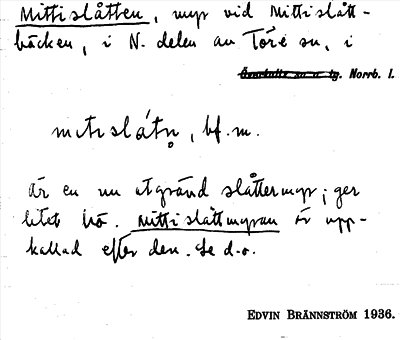 Mittislåtten, myr vid Mittislått-
bäcken, i N. delen av Töre sn, i
Överkalix sn o tg. Norrb. l.
mıtıslátn̥, bf. m.
Är en nu utgrävd slåttermyr; ger
litet hö. Mittislåttmyran är upp-
kallad efter den. Se d.o.
EDVIN BRÄNNSTRÖM 1936.